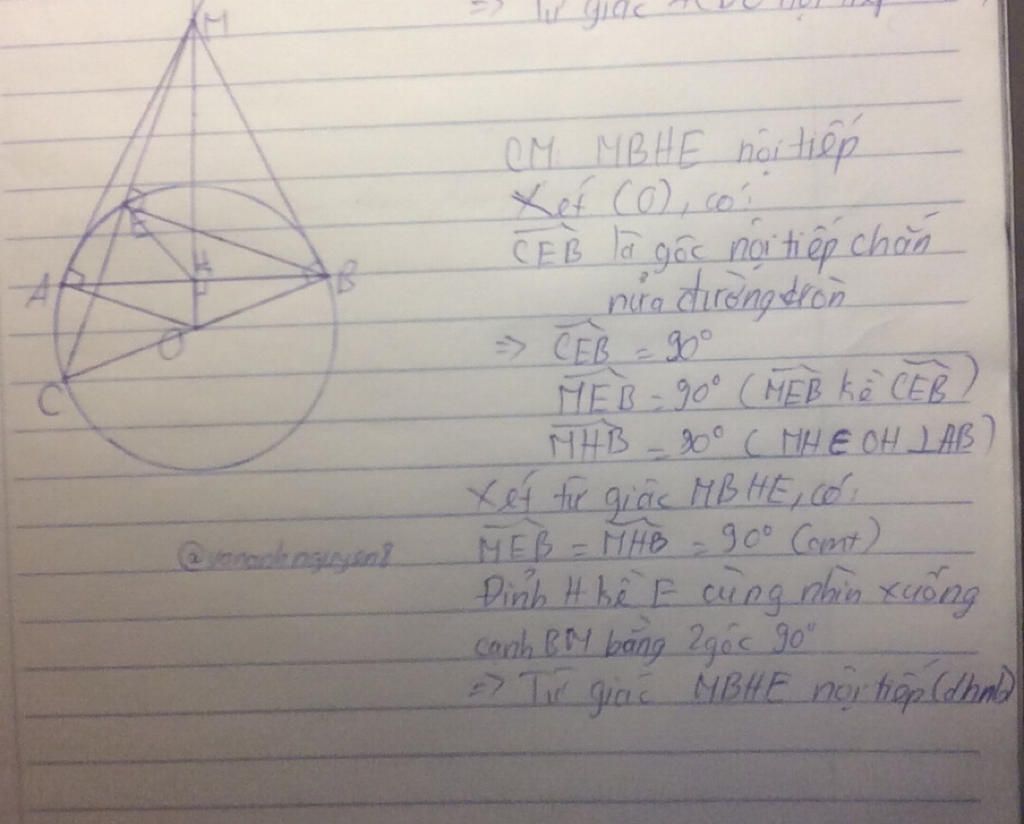 => Tứ giác nội tiếp
M
E
A
H
B
O
C
CM MBHE nội tiếp
Xét (O), có:
CEB là góc nội tiếp chắn
nửa đường tròn
=> CEB = 90°
MEB = 90° (MEB kề CEB)
MHB = 90° (MH ∈ OH ⊥ AB)
Xét tứ giác MBHE, có:
MEB = MHB = 90° (cmt)
Đỉnh H kề E cùng nhìn xuống
cạnh BM bằng 2 góc 90°
=> Tứ giác MBHE nội tiếp (dhnb)